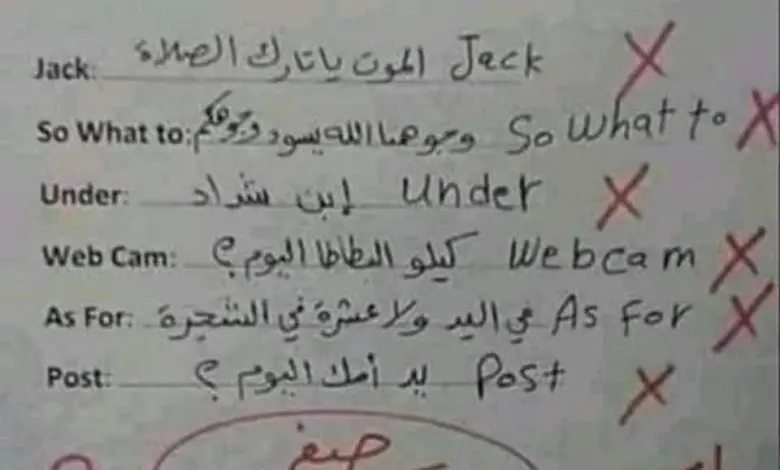 Jack: Jack الموت ياتارك الصلاة
So What to: So What to وجوهنا الله يسود وجوهكم
Under: Under إبن شداد
Web Cam: Webcam كيلو البطاطا اليوم ؟
As For: As For في اليد ولا عشرة في الشجرة
Post: Post يد أمك اليوم ؟
صفر